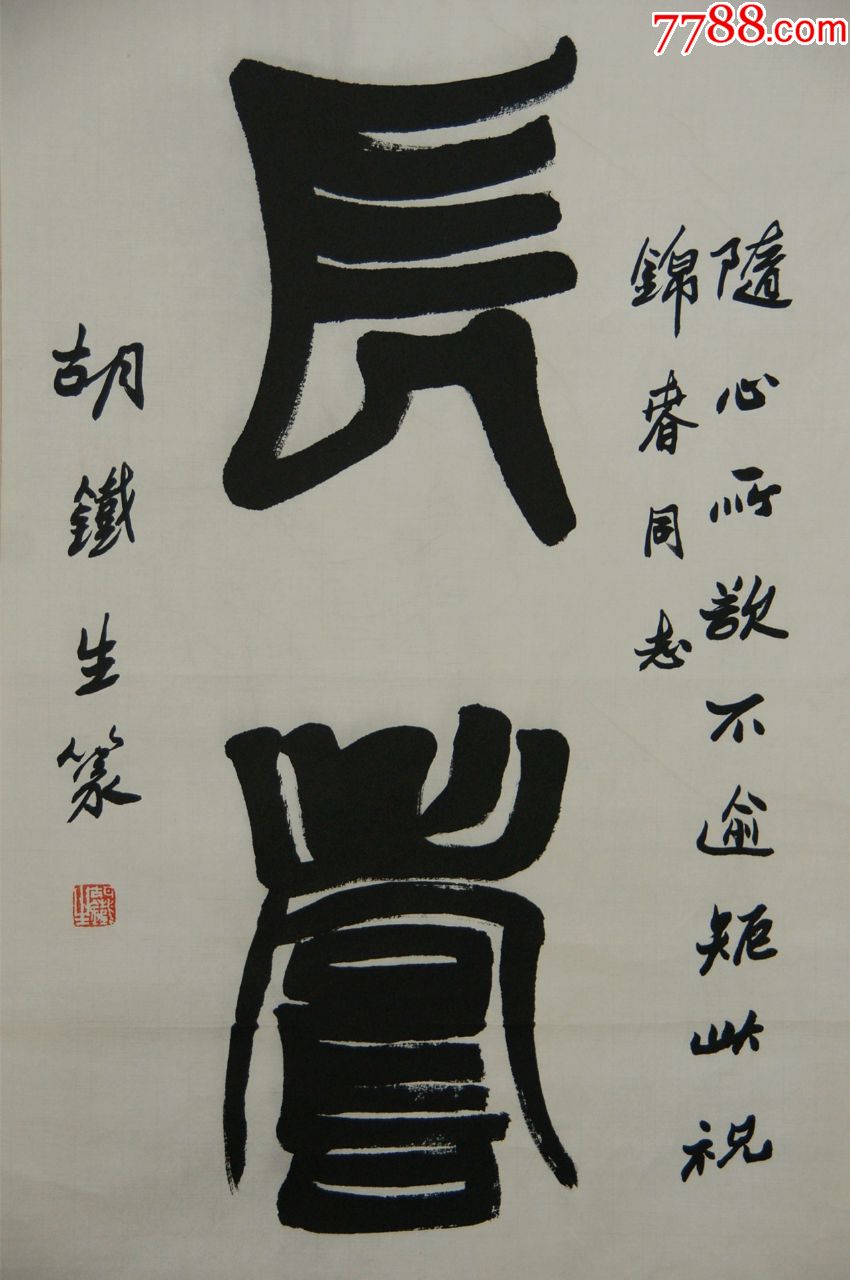 7788.com
長
隨心所欲不逾矩以祝
錦春同志
胡鐵生篆
胡鐵生